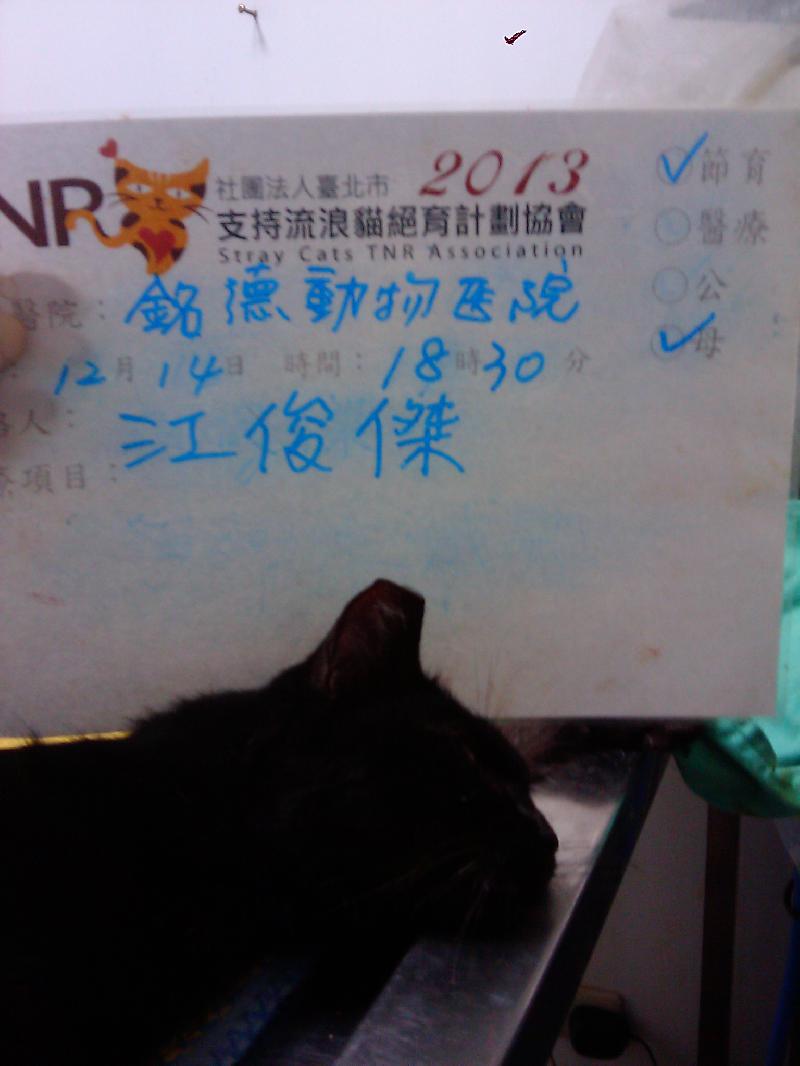 TNR 社團法人臺北市 2013
支持流浪貓絕育計劃協會
Stray Cats TNR Association
✓節育
醫療
公
✓母
醫院：銘德動物医院
：12月14日 時間：18時30分
絡人：江俊傑
療項目：